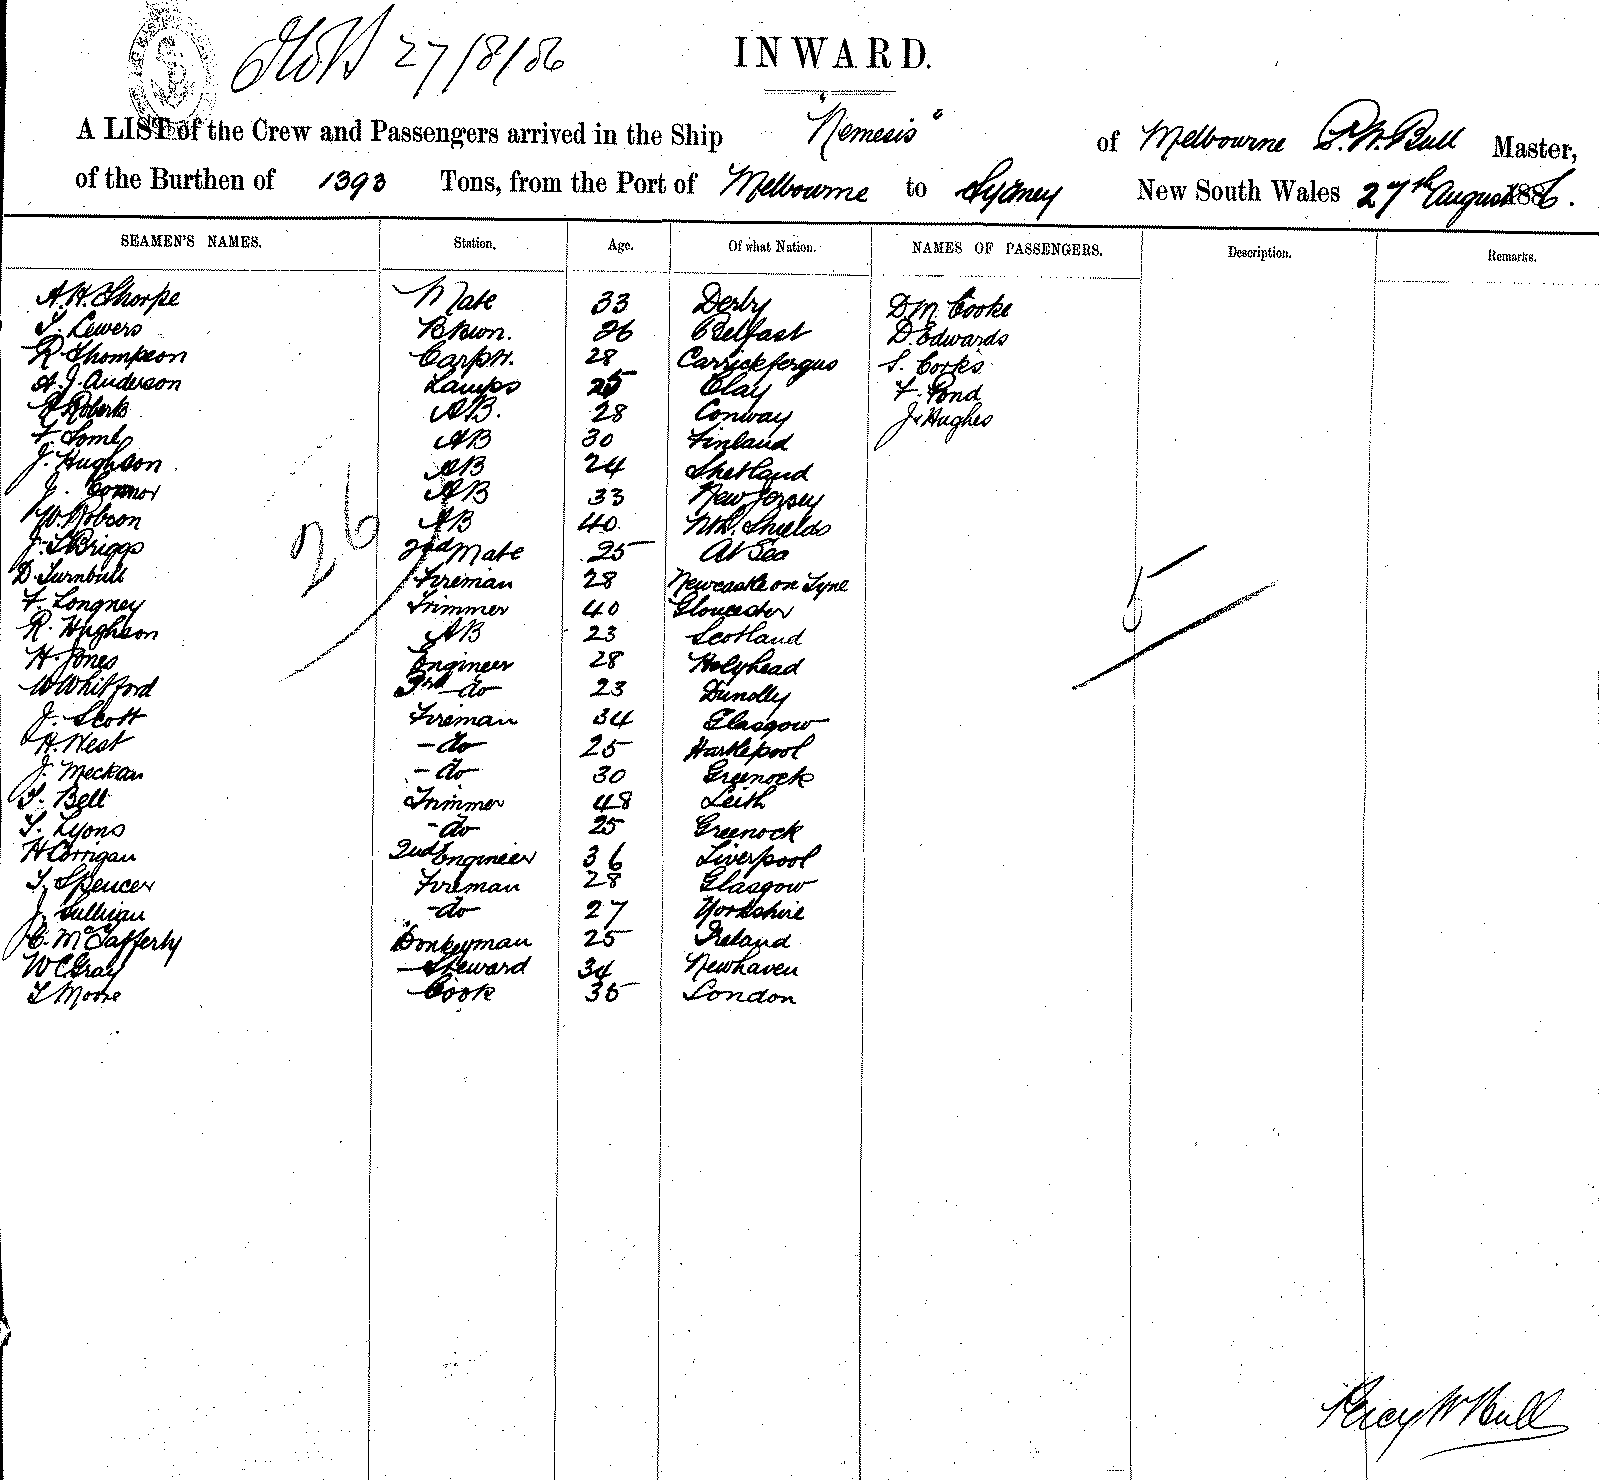 27/8/86
INWARD.
A LIST of the Crew and Passengers arrived in the Ship "Nemesis" of Melbourne P. W. Bull Master,
of the Burthen of 1393 Tons, from the Port of Melbourne to Sydney New South Wales 27th August 1886.
SEAMEN'S NAMES. Station. Age. Of what Nation. NAMES OF PASSENGERS. Description. Remarks.
A. H. Thorpe Mate 33 Derby D M Cooke
T. Lewers 26 Belfast D. Edwards
R Thompson Carptr. 28 Carrickfergus S. Corks
A. J. Anderson Lamps 25 Clay F. Pond
R Roberts AB. 28 Conway J. Hughes
F. AB 30 Finland
J. Hughson AB 24 Shetland
J. Connor AB 33 New Jersey
W. Robson AB 40 Nth. Shields
J. L Briggs 2nd Mate 25 At Sea
D. Turnbull Fireman 28 Newcastle on Tyne
F. Longney Trimmer 40 Gloucester
R. Hughson AB 23 Scotland
H. Jones Engineer 28 Holyhead
W Whitford 3rd do 23 Dunolly
J. Scott Fireman 34 Glasgow
H. West - do 25 Hartlepool
J. Meckan - do 30 Greenock
T. Bell Trimmer 48 Leith
T. Lyons - do 25 Greenock
H Corrigan 2nd Engineer 36 Liverpool
T. Spencer Fireman 28 Glasgow
J. Sullivan - do 27 Yorkshire
C. McTafferty Donkeyman 25 Ireland
W C Gray Steward 34 Newhaven
T Moore Cook 35 London
26
5
Percy W Bull